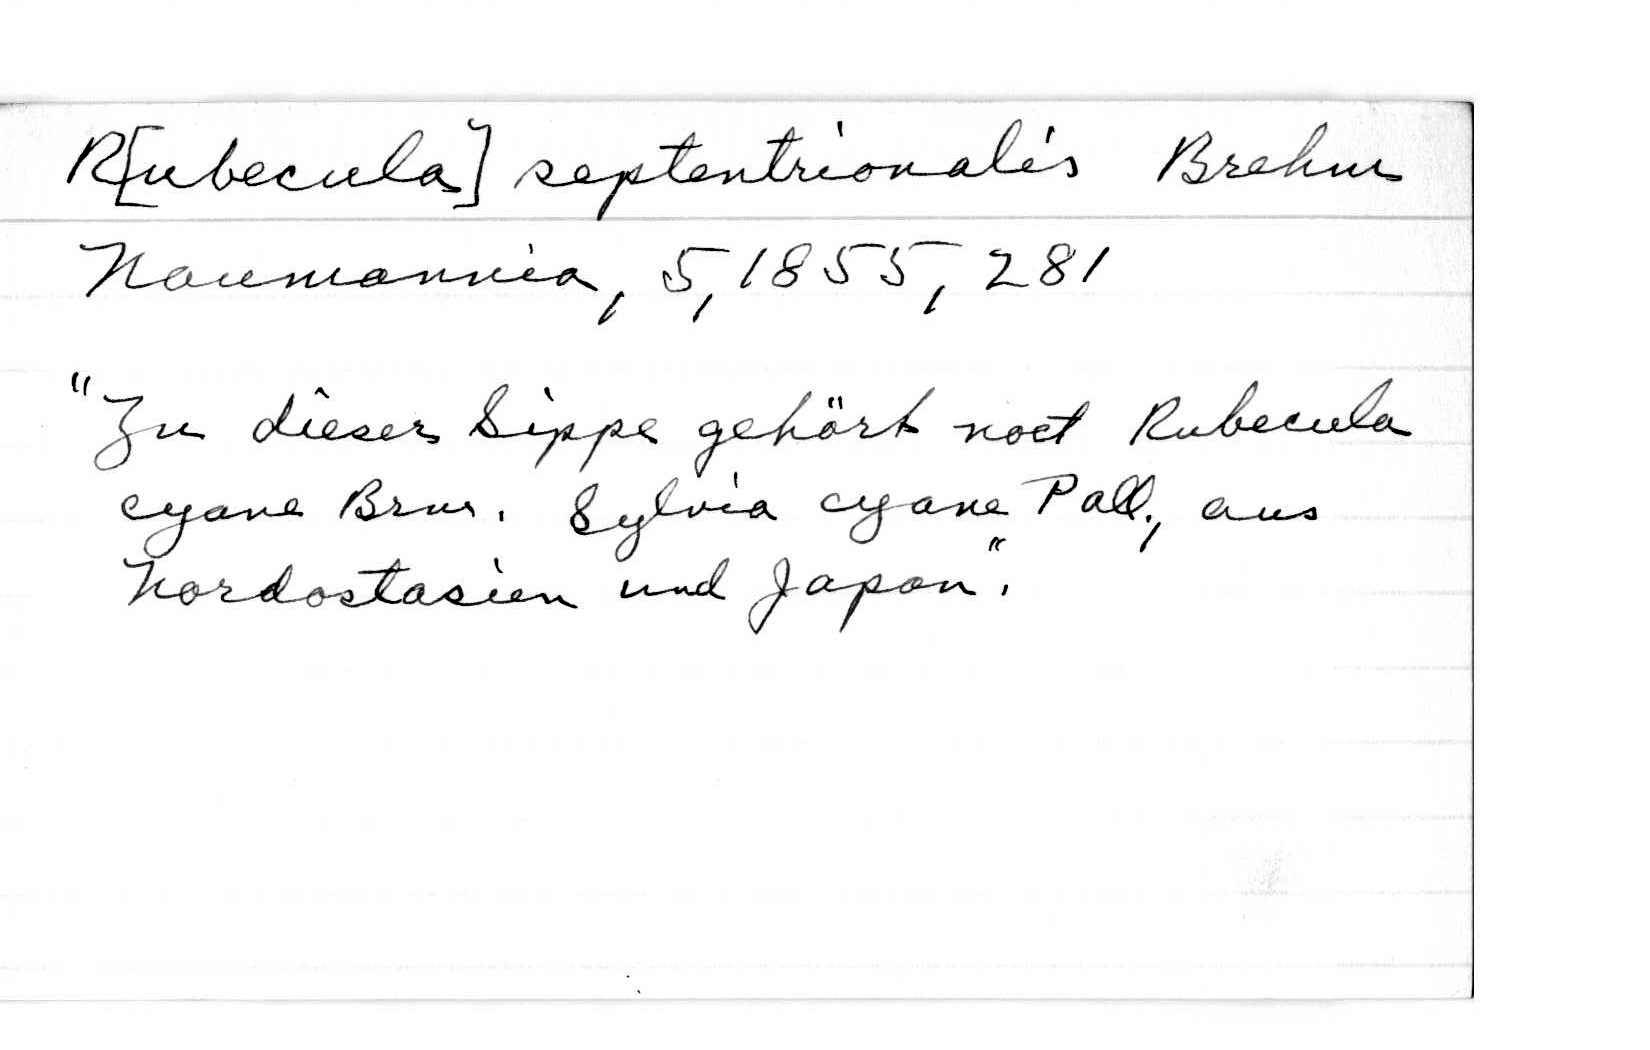 R[ubecula] septentrionalis Brehm
Naumannia, 5, 1855, 281
"Zu dieser Sippe gehört noct Rubecula
cyane Brm. Sylvia cyane Pall., aus
Nordostasien und Japan".